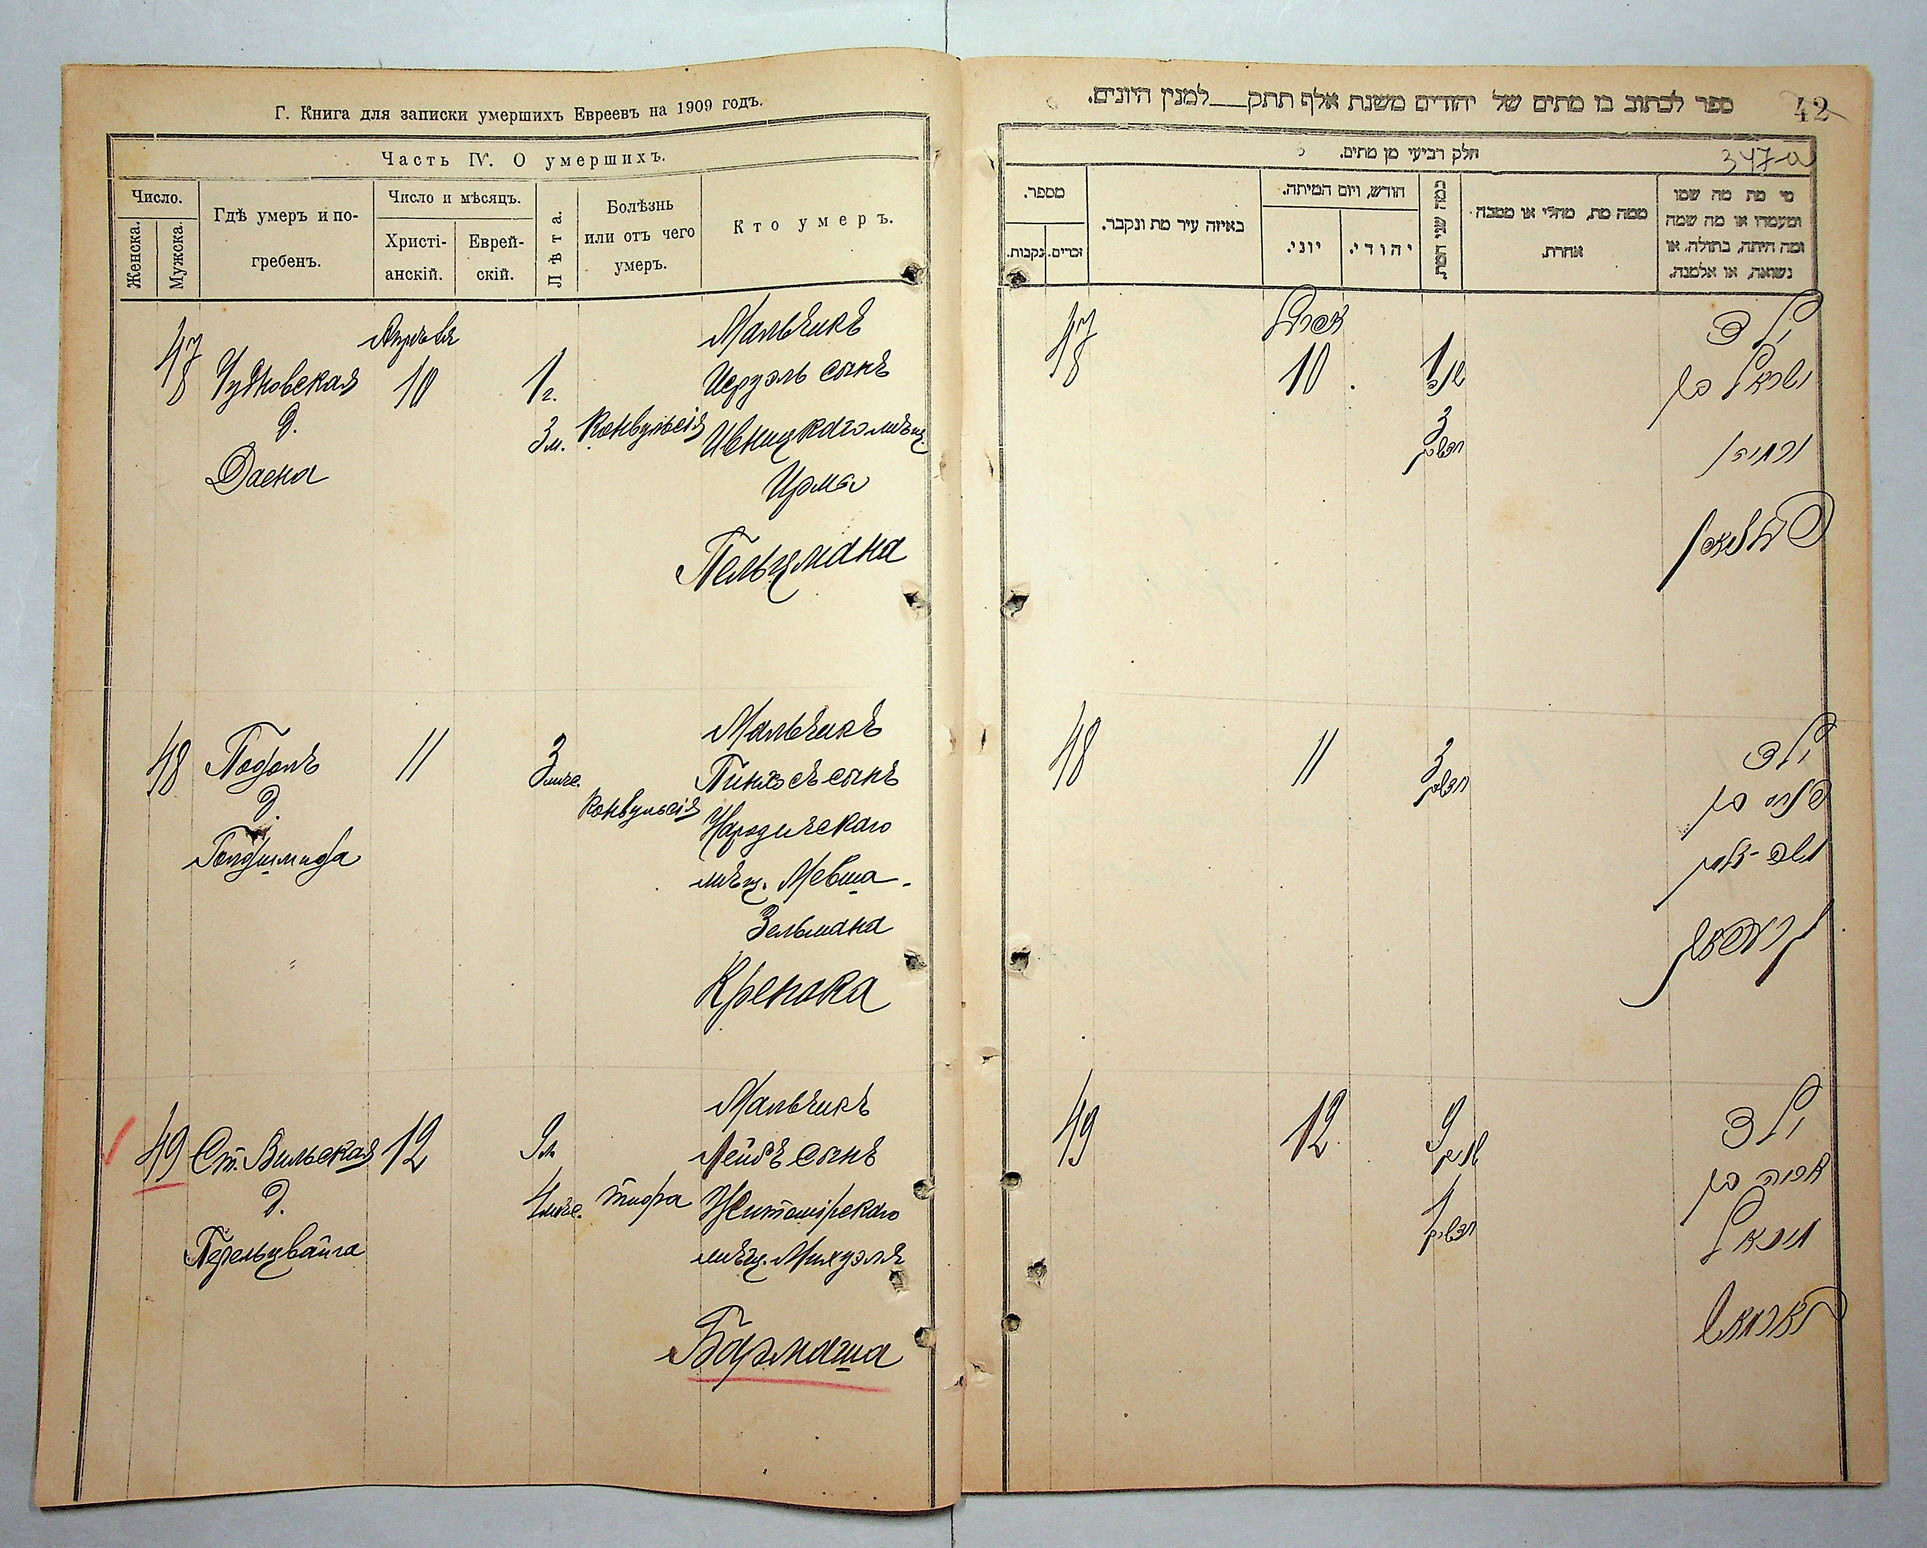 Г. Книга для записки умершихъ Евреевъ на 1909 годъ.
Часть IV. О умершихъ.
Число.
Женска.
Мужска.
Гдѣ умеръ и по-
гребенъ.
Число и мѣсяцъ.
Христі-
анскій.
Еврей-
скій.
Лѣта.
Болѣзнь
или отъ чего
умеръ.
Кто умеръ.
47
Чудновская
д.
Даена
Апрѣля
10
1 г.
3 м.
Конвульсія
Мальчикъ
Исруэль сынъ
Ивницкаго мѣщ.
Ирмы
Пельцмана
48
Подолъ
д.
Гольдшмида
11
3 мѣс.
Конвульсія
Мальчикъ
Пинхосъ сынъ
Народическаго
мѣщ. Мевша-
Зельмана
49
Ст. Вильская
д.
Перельцвайга
12
9 л
1 мѣс.
тифа
Мальчикъ
Лейбъ сынъ
Житомірскаго
мѣщ. Михуэля
Бармаша
ספר לכתוב בו מתים של יהודים משנת אלף תתק למנין היונים.
42
חלק רביעי מן מתים.
347-а
מספר.
נקבות.
זכרים.
באיזה עיר מת ונקבר.
חודש, ויום המיתה.
יוני.
יהודי.
כמה שני המת.
ממה מת, מחלי או ממכה
אחרת.
מי מת מה שמו
ומעמדו או מה שמה
ומה היתה, בתולה. או
נשואה, או אלמנה.
47
אפריל
10
1
3
ילד
ישראל בן
48
11
3
ילד
49
12
9
1
ילד